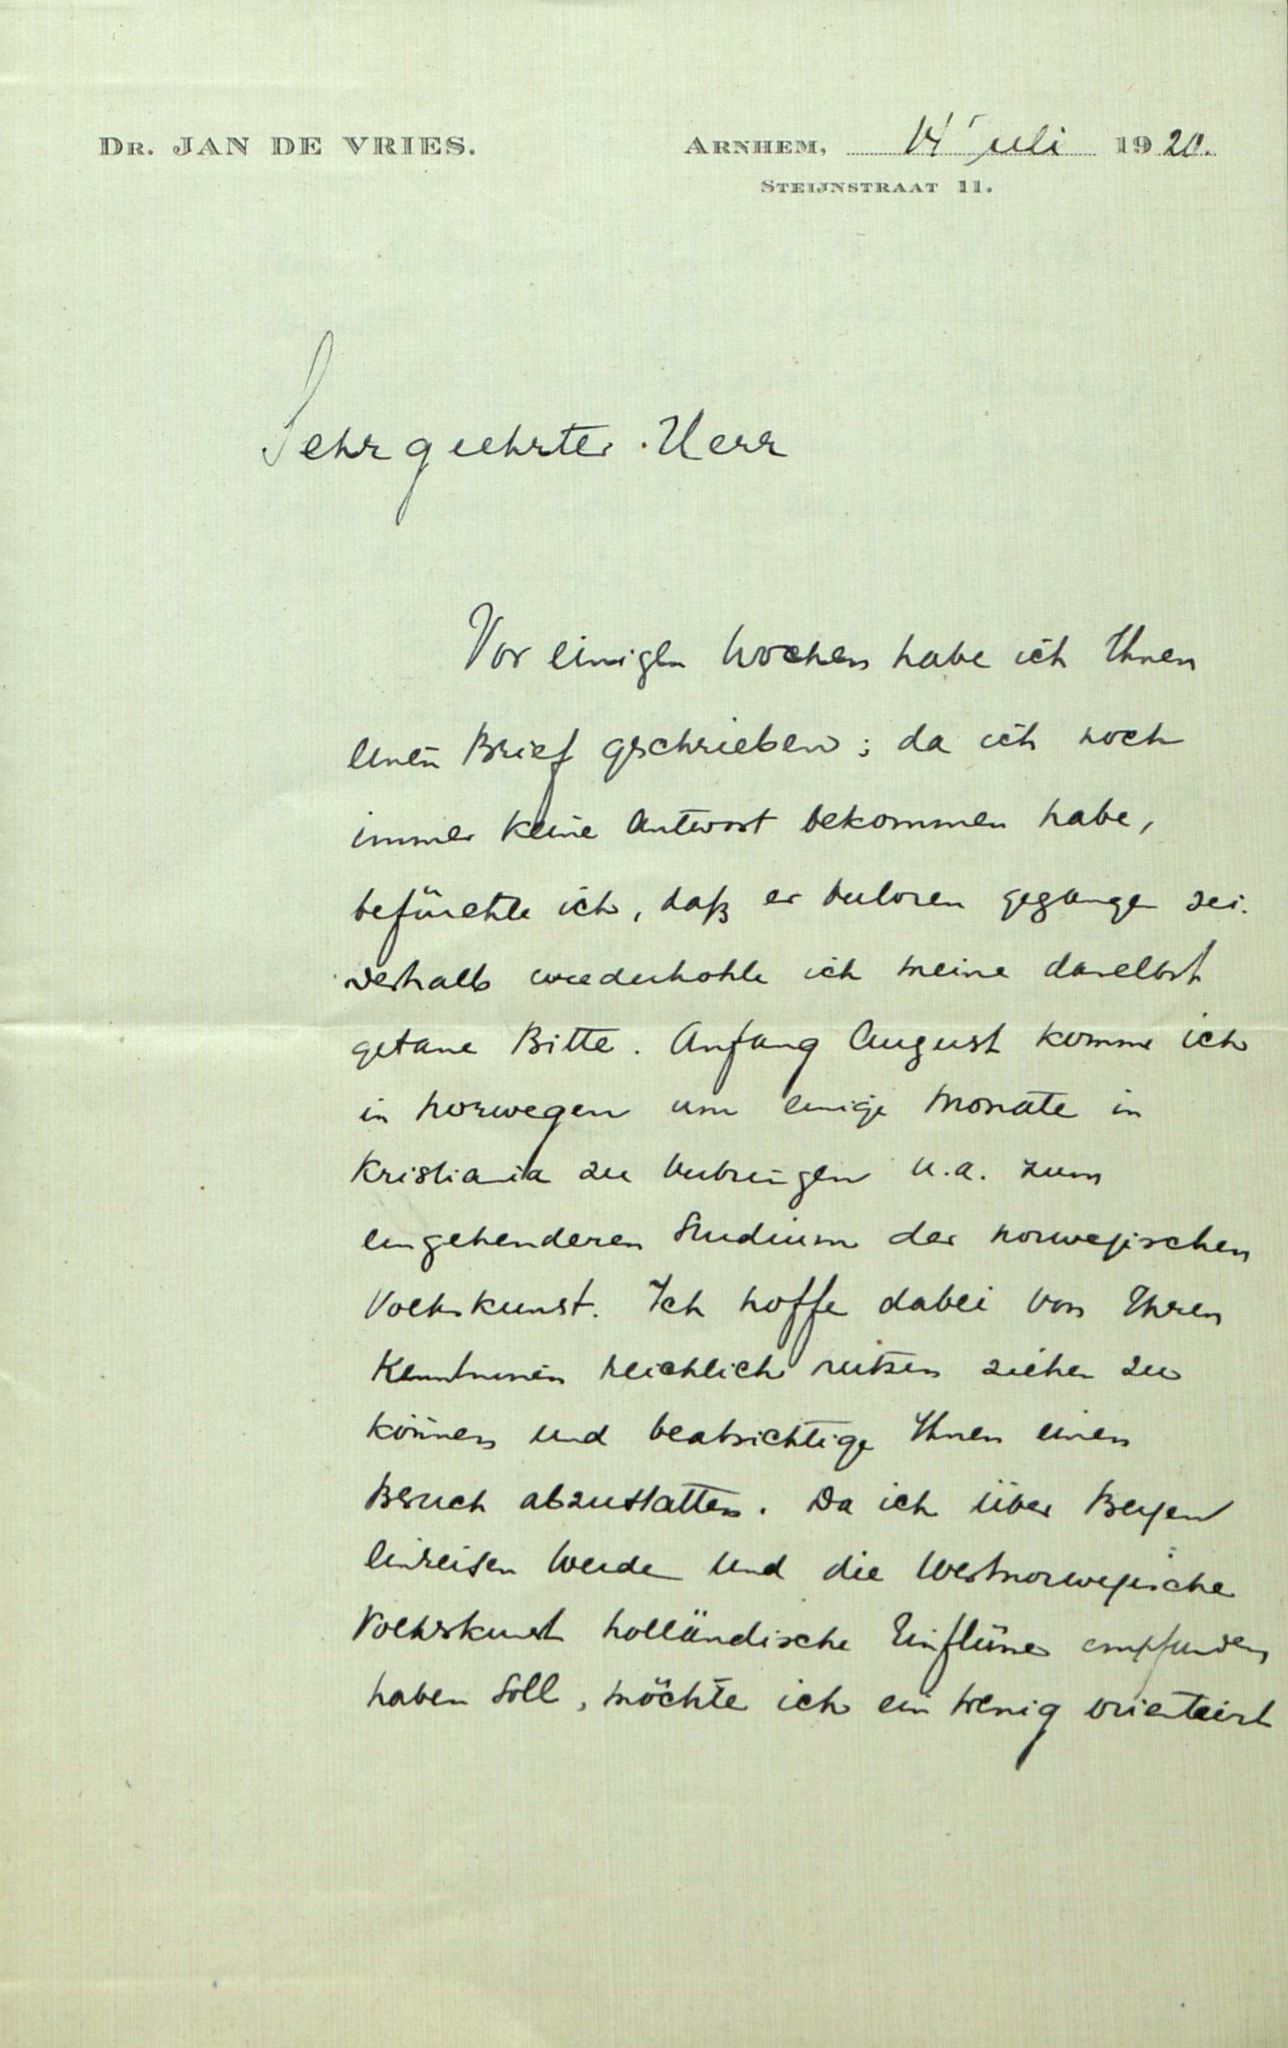 DR. JAN DE VRIES.
ARNHEM, 14 Juli 1920.
STEIJNSTRAAT 11.
Sehr geehrter Herr
Vor einigen Wochen habe ich Ihnen
einen Brief geschrieben; da ich noch
immer keine Antwort bekommen habe,
befürchte ich, daß er verloren gegangen sei.
deshalb wiederhohle ich meine daselbst
getane Bitte. Anfang August komme ich
in Norwegen um einige Monate in
Kristiania zu verbringen u.a. zum
eingehenderen Studium der norwegischen
Volkskunst. Ich hoffe dabei von Ihren
Kenntnissen reichlich nutzen ziehen zu
können und beabsichtige Ihnen einen
Besuch abzustatten. Da ich über Bergen
einreisen werde und die Westnorwegische
Volkskunst holländische Einflüsse empfunden
haben soll, möchte ich ein wenig orientiert